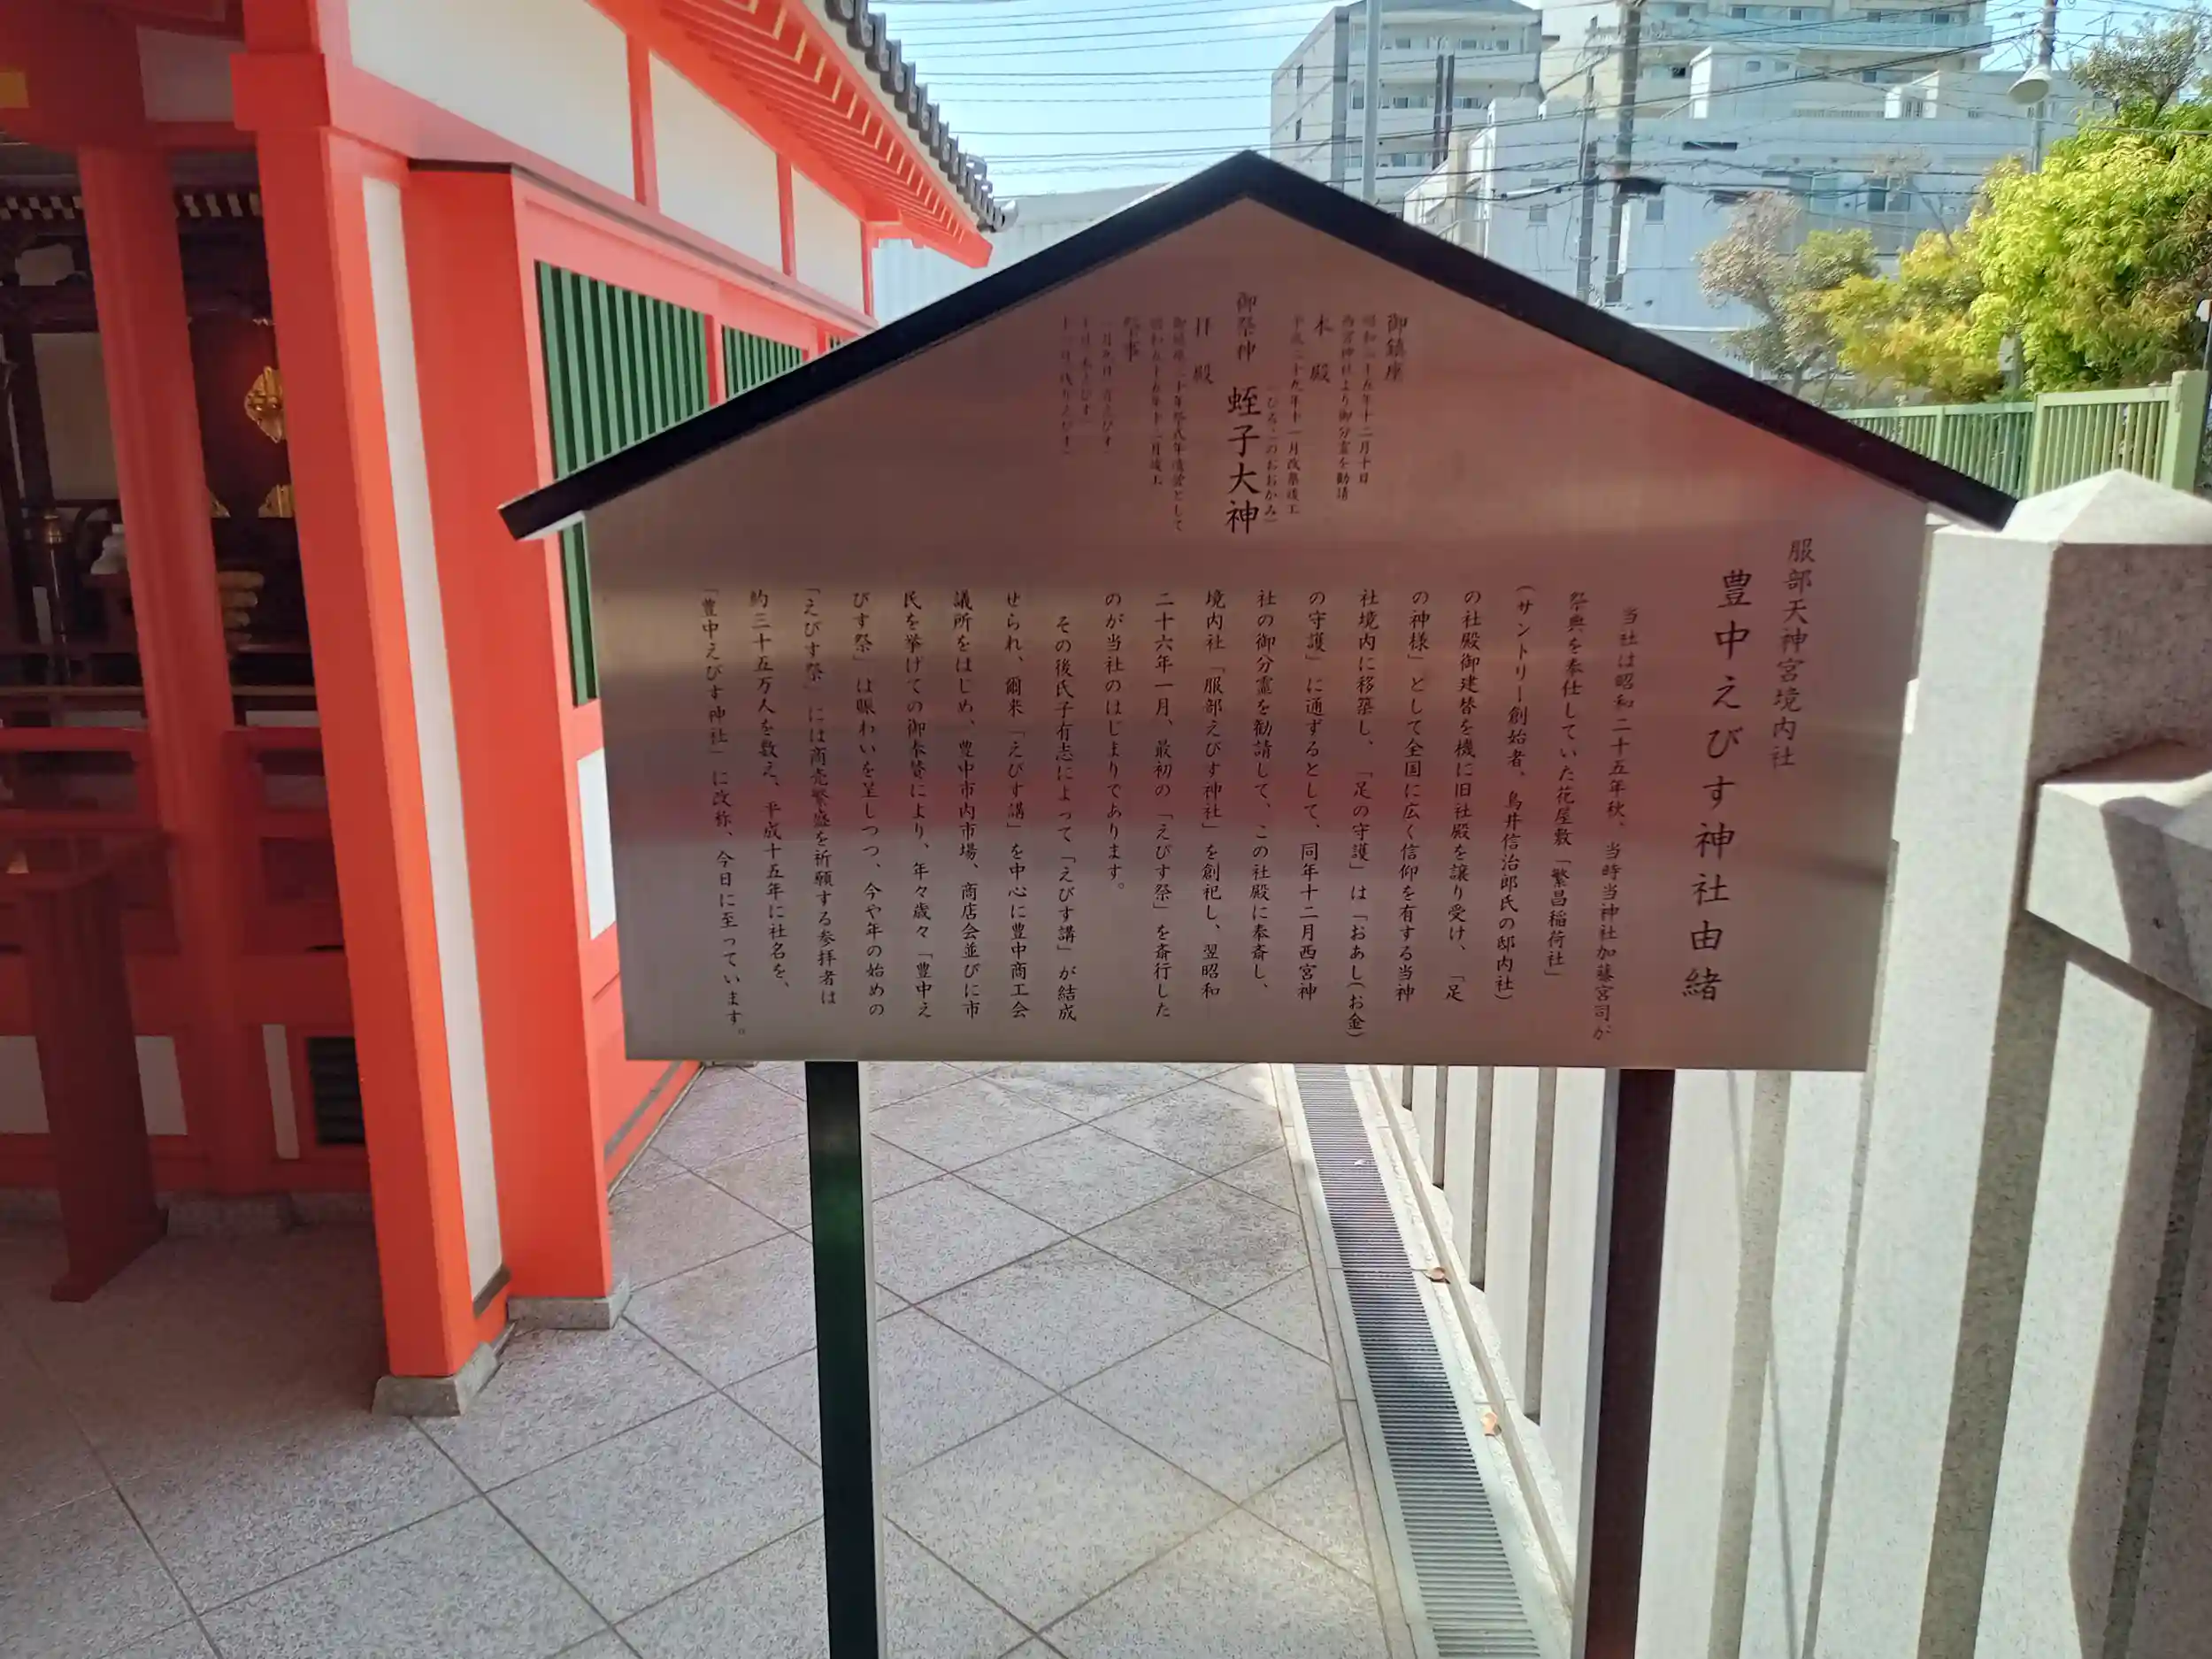 御鎮座
昭和二十五年十二月十日
西宮神社より御分霊を勧請
本殿
平成二十九年十一月改築竣工
(ひるこのおおかみ)
御祭神 蛭子大神
拝殿
御鎮座三十年祭式年造営として
昭和五十五年十二月竣工
祭事
一月九日 宵えびす
十日 本えびす
十一日 残りえびす
服部天神宮境内社
豊中えびす神社由緒
当社は昭和二十五年秋、当時当神社加藤宮司が
祭典を奉仕していた花屋敷「繁昌稲荷社」
(サントリー創始者、鳥井信治郎氏の邸内社)
の社殿御建替を機に旧社殿を譲り受け、「足
の神様」として全国に広く信仰を有する当神
社境内に移築し、「足の守護」は「おあし(お金)
の守護」に通ずるとして、同年十二月西宮神
社の御分霊を勧請して、この社殿に奉斎し、
境内社「服部えびす神社」を創祀し、翌昭和
二十六年一月、最初の「えびす祭」を斎行した
のが当社のはじまりであります。
その後氏子有志によって「えびす講」が結成
せられ、爾来「えびす講」を中心に豊中商工会
議所をはじめ、豊中市内市場、商店会並びに市
民を挙げての御奉賛により、年々歳々「豊中え
びす祭」は賑わいを呈しつつ、今や年の始めの
「えびす祭」には商売繁盛を祈願する参拝者は
約三十五万人を数え、平成十五年に社名を、
「豊中えびす神社」に改称、今日に至っています。